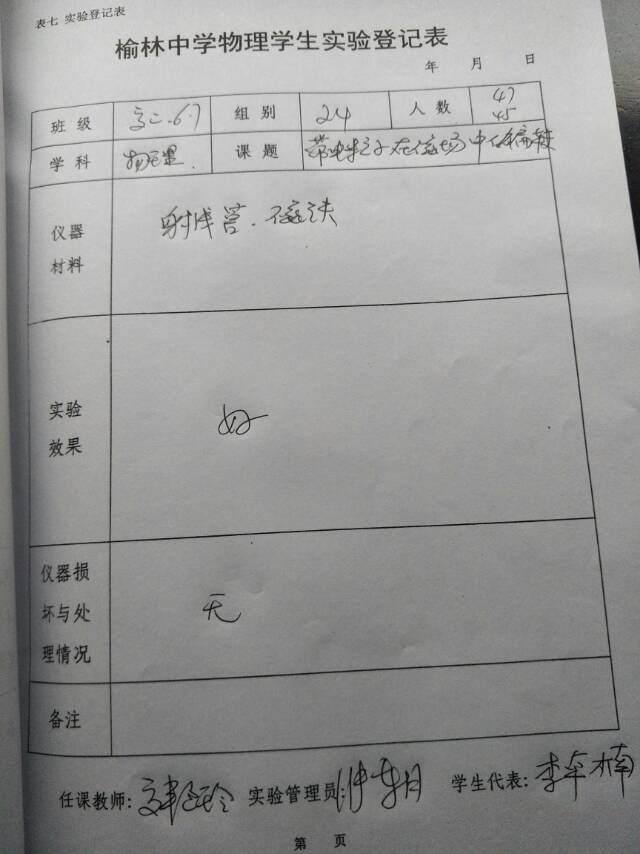 表七 实验登记表
榆林中学物理学生实验登记表
年 月 日
班级 高二.6.7 组别 24 人数 47 45
学科 物理. 课题 带电粒子在磁场中的偏转
仪器材料 射线管.磁铁
实验效果 好
仪器损坏与处理情况 无
备注
任课教师: 实验管理员: 学生代表: 李卓楠
第 页